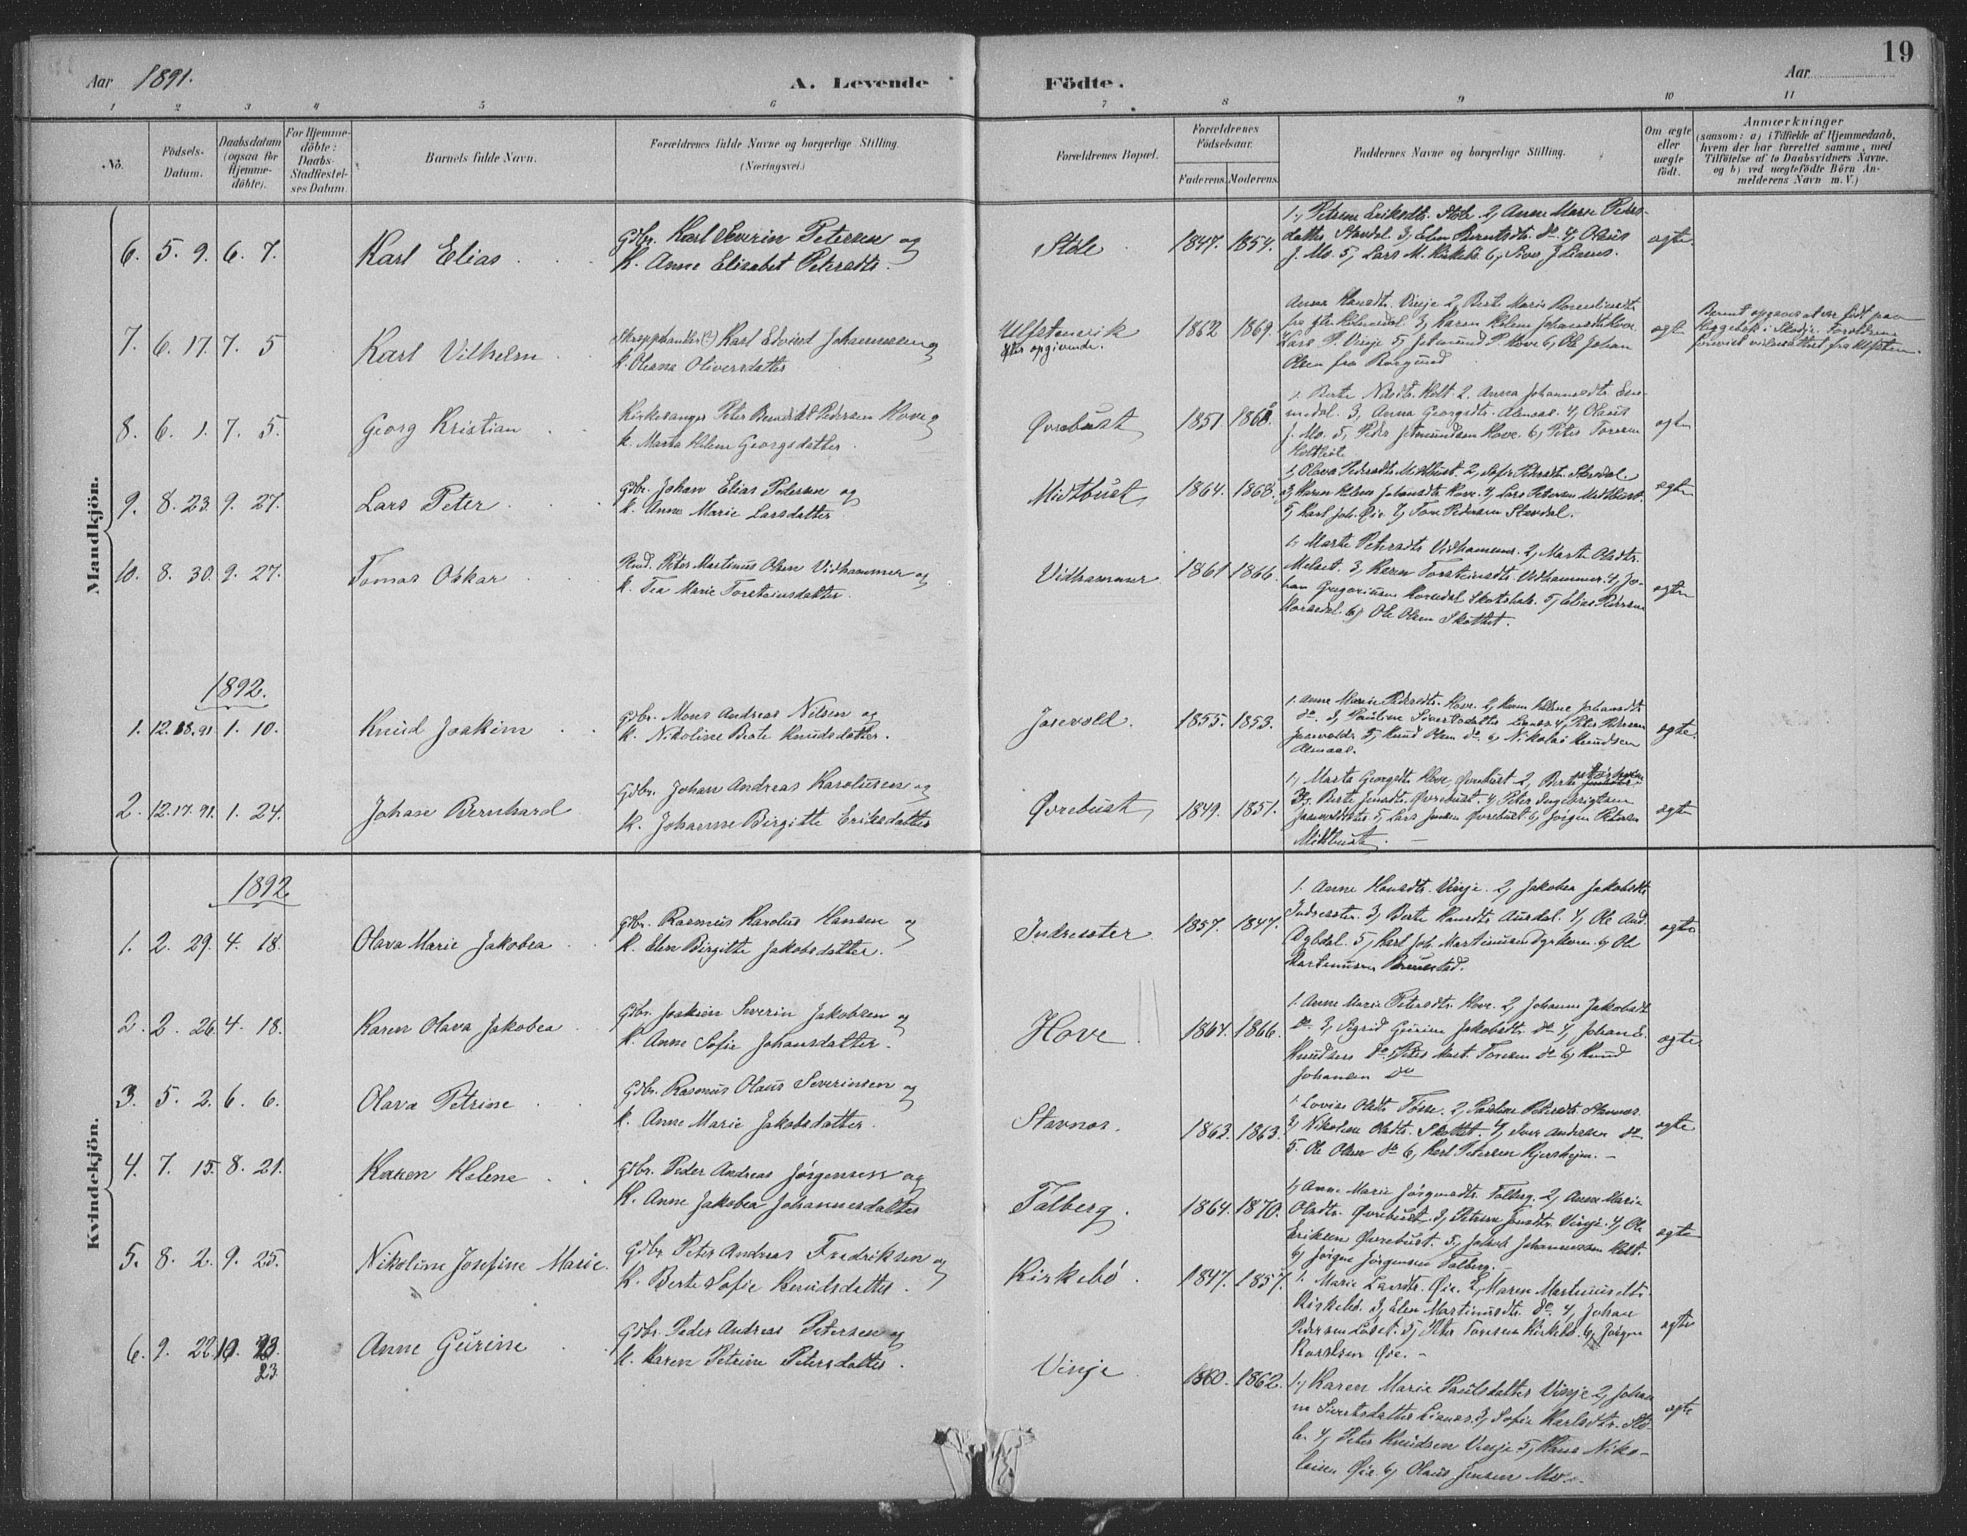 19
Aar 1891.
A. Levende Födte.
Aar
1 2 3 4 5 6 7 8 9 10 11
No.
Födsels-Datum.
Daabsdatum (ogsaa for Hjemme-döbte).
For Hjemme-döbte: Daabs-Stadfæstel-ses Datum.
Barnets fulde Navn.
Forældrenes fulde Navne og borgerlige Stilling. (Næringsvei.)
Forældrenes Bopæl.
Forældrenes Födselsaar.
Faderens. Moderens.
Faddernes Navne og borgerlige Stilling.
Om ægte eller uægte födt.
Anmærkninger
(saasom: a) i Tilfælde af Hjemmedaab, hvem der har forrettet samme, med Tilföielse af to Daabsvidners Navne, og b) ved uægtefödte Börn An-melderens Navn m. V.)
Mandkjön.
6. 5. 9. 6. 7. Karl Elias
Gdbr. Karl Severin Petersen og
K. Anne Elisabet Petersdtr.
Stöle 1847. 1854.
1, Petrine Eriksdtr. Stöle 2, Anne Marie Peders-
datter Stavdal 3, Elen Berntsdtr. do 4, Olaus
J. Mo. 5, Lars M. Kirkebö 6, Siver J. Lianes.
ægte.
7. 6. 17. 7. 5 Karl Vilhelm
Karl Edvard Johannessen og
K. Oleana Oliversdatter
Ulfstenvik
efter opgivende.
1862 1869.
Anna Hansdtr. Vinje 2, Berte Marie
3, Karen Helene Johansdtr. Hove
Lars P. Vinje 5, P. Hove 6, Ole Johan
Olsen fra Borgund
ægte
8. 6. 1. 7. 5. Georg Kristian
Kirkesanger Peter Benedikt Pedersen Hove og
K. Marta Helene Georgsdatter.
Øvrebust 1851 1868.
1. Berte Holt. 2. Anna Johannesdtr.
3, Anna Georgsdtr. Aamaal. 4, Olaus
J. Mo. 5, Peder Hove. 6, Peter Toresen
ægte
9. 8. 23. 9. 27. Lars Peter
Gdbr. Johan Elias Petersen og
K. Anne Marie Larsdatter
Midtbust 1864. 1868.
1, Olava Pedersdtr. Midtbust. 2, Sofie Pedersdtr. Stavdal
3, Karen Helene Johansdtr. Hove. 4, Lars Petersen Midtbust.
5, Karl Joh. Øie. 7, Tore Pedersen Stavdal.
ægte
10. 8. 30. 9. 27. Tomas Oskar
Peter Martinus Olsen Vidhammer og
K. Tea Marie Torsteinsdatter.
Vidhammer 1861 1866.
1, Marte Petersdtr. Vidhammer. 2, Marte Olsdtr.
3, Karen Torsteinsdtr. Vidhammer. 4, Jo-
han Gregoriusen 5, Elias Pedersen
6, Ole Olsen Skottet.
ægte
1892.
1. 12. 18. 91 1. 10. Knud Joakim
Gdbr. Mons Andreas Nilsen og
K. Nikoline Berte Knudsdatter.
Jösevold. 1855. 1853.
1. Anne Marie Pedersdtr. Hove. 2, Karen Helene Johansdtr.
do. 3, Pauline Siversdatter Lianes 4, Peter Pedersen
5, Knud Olsen do. 6, Nikolai Knudsen
Aamaal.
ægte.
2. 12. 17. 91. 1. 24. Johan Bernhard
Gdbr. Johan Andreas Karolusen og
K. Johanne Birgitte Eriksdatter
Øvrebust 1849. 1851.
1, Marta Georgsdtr. Hove Øvrebust 2, Berte
3, Berte Jensdtr. Øvrebust. 4, Peter Ingebrigtsen
5, Lars Jensen Øvrebust 6, Jørgen Petersen
Midtbust.
ægte
Kvindekjön.
1892
1. 2. 29. 4. 18. Olava Marie Jakobea
Gdbr. Rasmus Karolus Hansen og
K. Elen Birgitte Jakobsdatter.
Indresæter. 1857. 1847.
1. Anne Hansdtr. Vinje. 2, Jakobea Jakobsdtr.
Indresæter. 3, Berte Hansdtr. Aursdal. 4, Ole And.
5, Karl Joh. Martinusen Dyrkorn. 6, Ole
Martinusen
ægte
2. 2. 26. 4. 18. Karen Olava Jakobea
Gdbr. Joakim Severin Jakobsen og
K. Anne Sofie Johansdatter.
Hove 1864. 1866.
1. Anne Marie Petersdtr. Hove. 2, Johanne Jakobsdt
do 3, Sigrid Gurine Jakobsdtr. do 4, Johan E.
Knudsen do 5, Peter Mart. Toresen do 6, Knud
Johansen do
ægte
3. 5. 2. 6. 6. Olava Petrine
Gdbr. Rasmus Olaus Severinsen og
K. Anne Marie Jakobsdatter.
Stavnes. 1863. 1863.
1. Lovise Olsdtr. Tøsse. 2, Pauline Petersdtr. Stavnes.
3, Nikoline Olsdtr. Skottet. 4, Siver Andersen do
5. Ole Olsen do 6, Karl Petersen
ægte
4. 7. 15. 8. 21. Karen Helene
Gdbr. Peder Andreas Jørgensen og
K. Anne Jakobea Johannesdatter
Talberg. 1864. 1870.
1, Anne Marie Jørgensdtr. Talberg. 2, Anne Marie
Olsdtr. Øvrebust. 3, Petrine Jensdtr. Vinje. 4, Ole
Eriksen Øvrebust. 5, Jakob Johannessen Holt.
6, Jørgen Jørgensen Talberg.
ægte
5. 8. 2. 9. 25. Nikoline Josefine Marie.
Gdbr. Peter Andreas Fredriksen og
K. Berte Sofie Knutsdatter.
Kirkebö. 1847. 1857.
1. Marie Larsdtr. Øie. 2, Maren Martinusdtr.
Kirkebö. 3, Elen Martinusdtr. do. 4, Johan
Pedersen 5, Peter Toresen Kirkebö. 6, Jørgen
Karlsen Øie.
ægte
6. 9. 22. 10. 23. Anne Gurine
23.
Gdbr. Peder Andreas Petersen og
K. Karen Petrine Petersdatter.
Vinje 1860. 1862.
1, Karen Marie Paulsdatter Vinje 2, Johan-
ne Sivertsdatter Lianes. 3, Sofie Karlsdtr. Stö-
le. 4, Peter Knudsen Vinje 5, Hans Niko-
laisen Øie. 6, Olaus Jensen Mo.
ægte